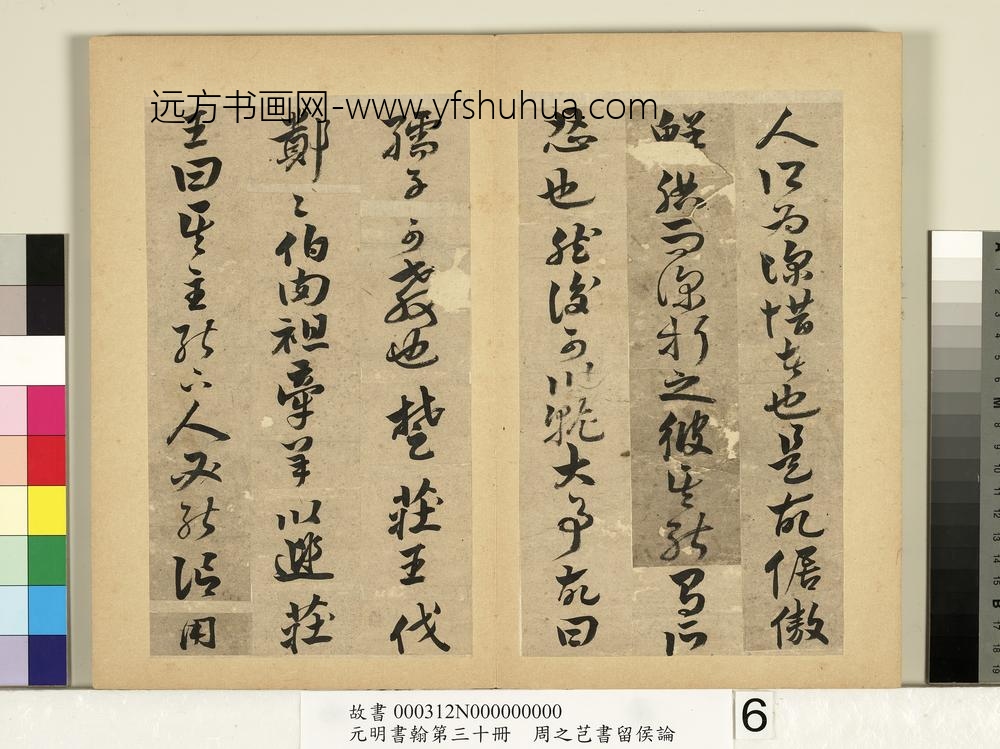 远方书画网-www.yfshuhua.com
人所为深惜者也是故倨傲
鮮腆而深折之彼其能有所
忍也然後可以就大事故曰
孺子可教也楚莊王伐
鄭〻伯肉袒牽羊以莊
王曰其主能下人必能信用
故書 000312N000000000
元明書翰第三十冊 周之芑書留侯論
6